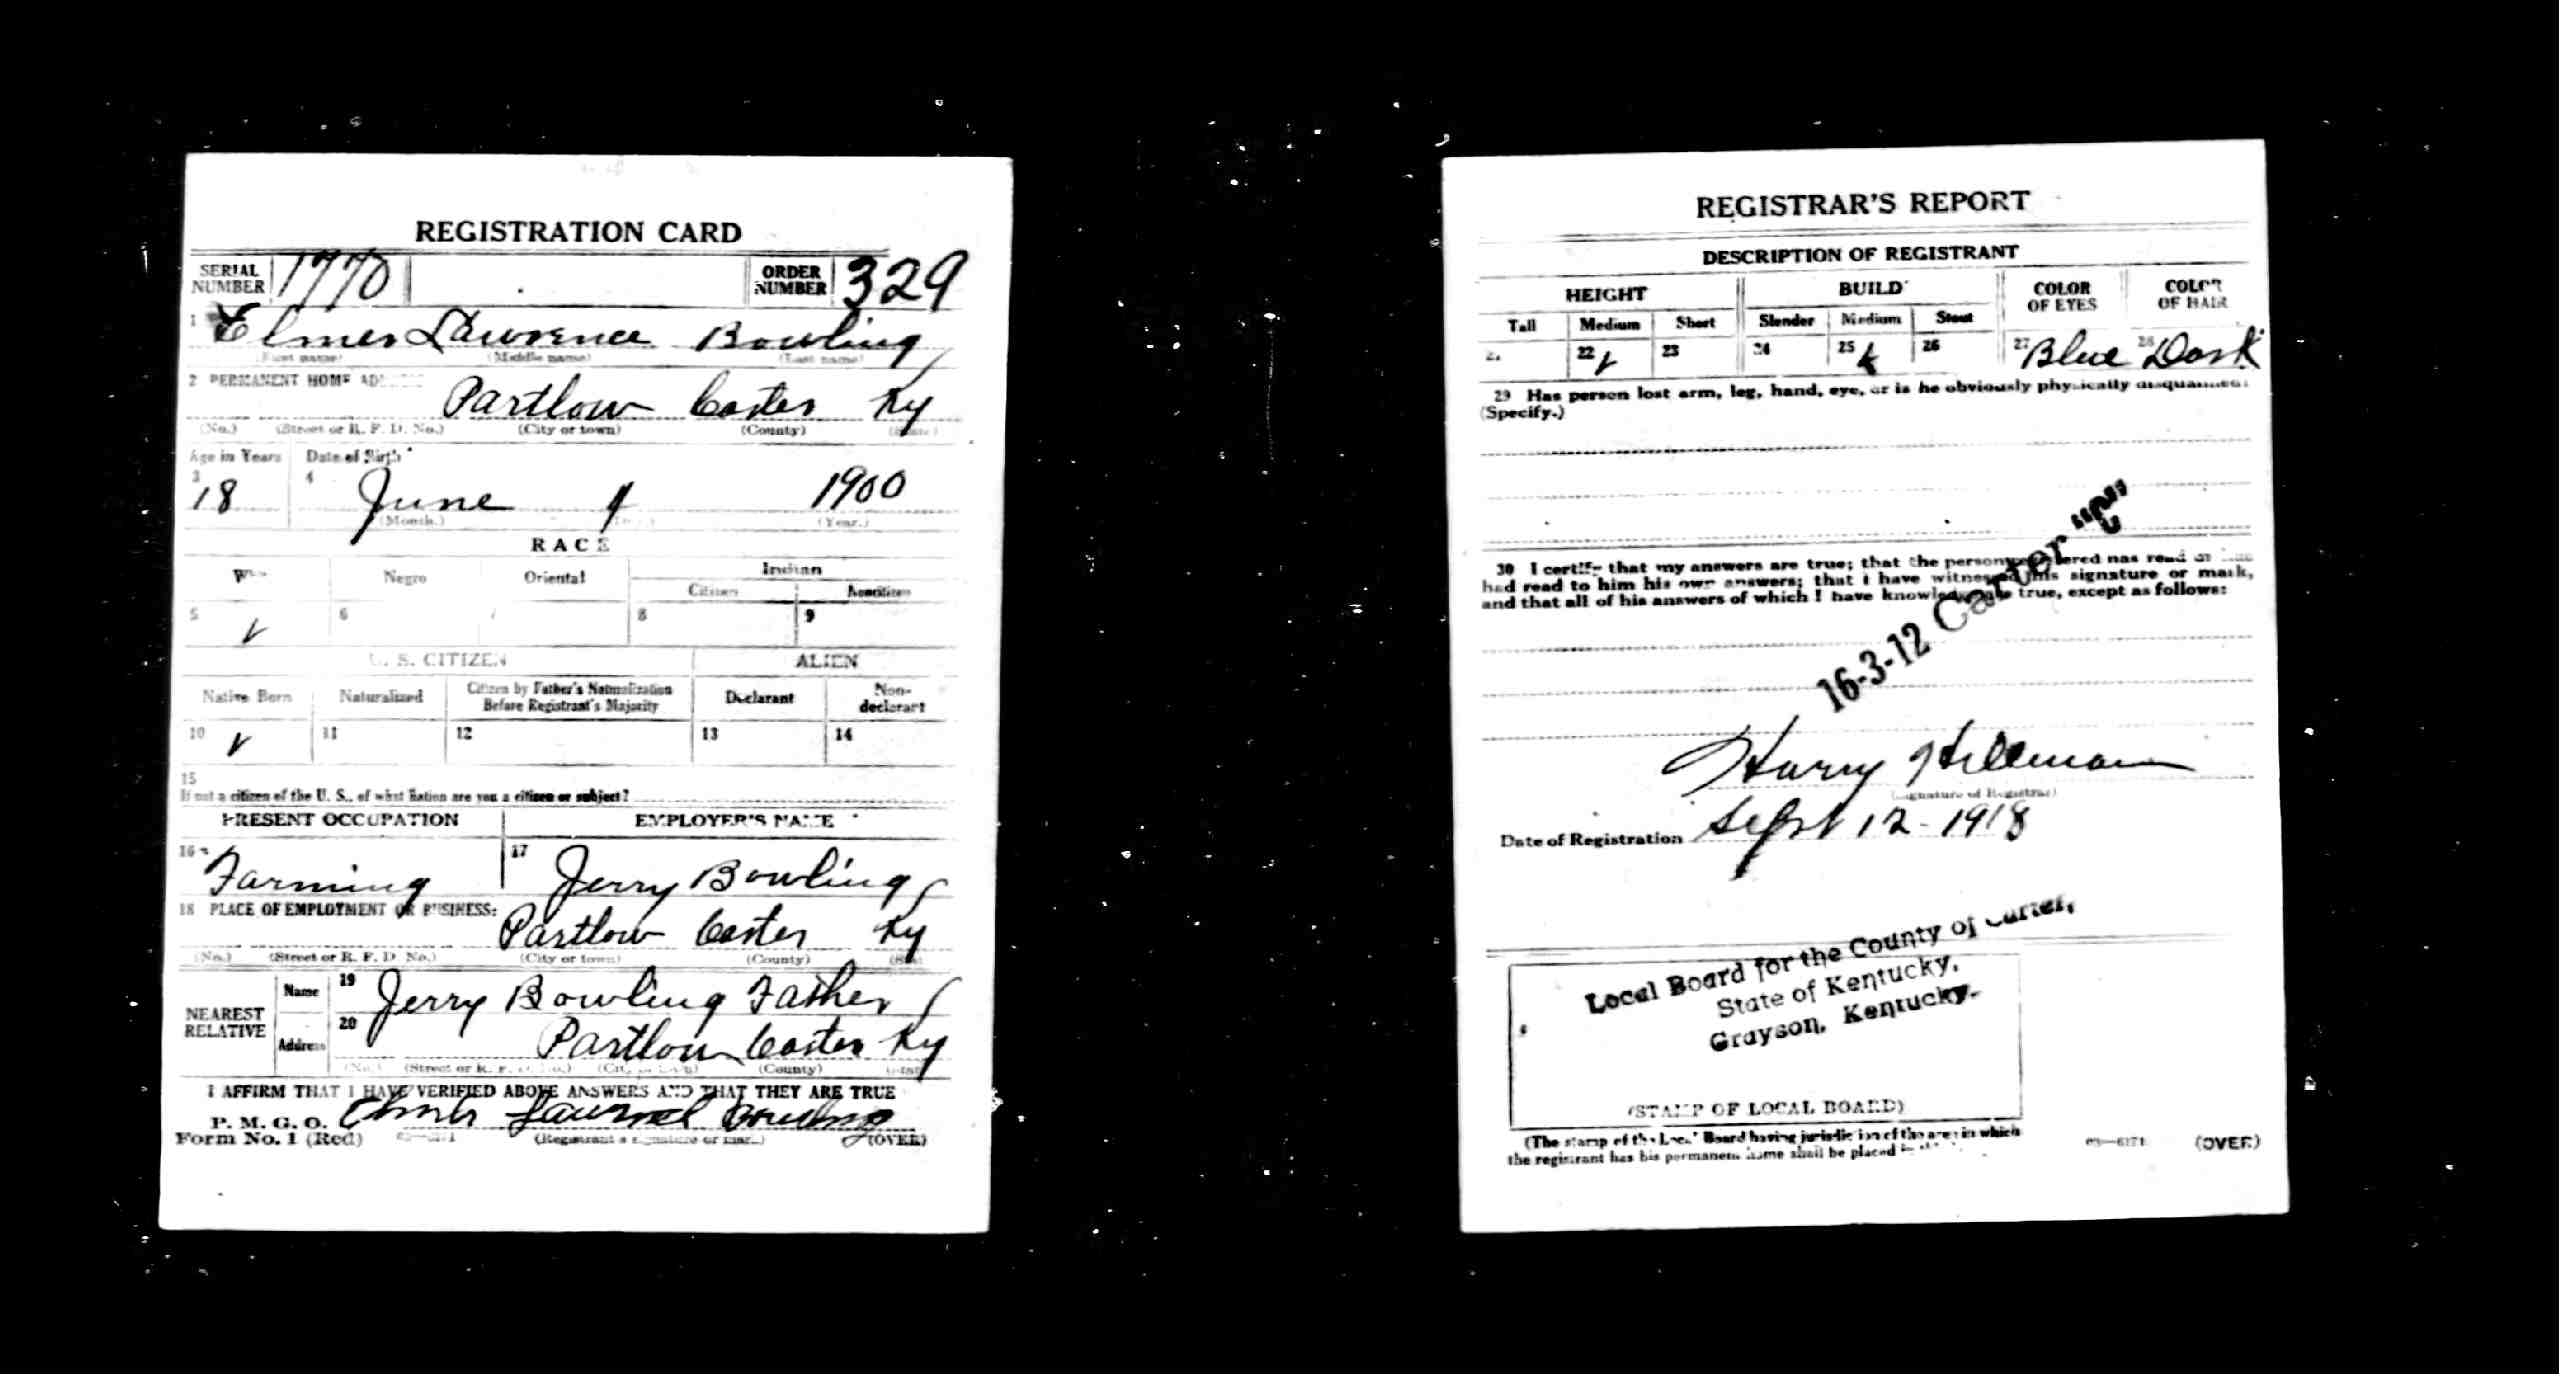 REGISTRATION CARD
SERIAL NUMBER 1770 ORDER NUMBER 329
1 Elmer Lawrence Bowling
(First name) (Middle name) (Last name)
2 PERMANENT HOME
Partlow Carter Ky
(No.) (Street or R. F. D. No.) (City or town) (County)
Age in Years Date of Birth
3 18 4 June 1900
(Month.) (Year.)
RACE
Negro Oriental Indian
Citizen Noncitizen
5 6 7 8 9
U. S. CITIZEN ALIEN
Native Born Naturalized Citizen by Father's Naturalization Before Registrant's Majority Declarant Non-declarant
10 11 12 13 14
15
If not a citizen of the U. S., of what nation are you a citizen or subject?
PRESENT OCCUPATION EMPLOYER'S NAME
16 Farming 17 Jerry Bowling
18 PLACE OF EMPLOYMENT OR BUSINESS:
Partlow Carter Ky
(No.) (Street or R. F. D. No.) (City or town) (County)
NEAREST RELATIVE Name 19 Jerry Bowling Father
Address 20 Partlow Carter Ky
(No.) (Street or R. F. D. No.) (City or town) (County)
I AFFIRM THAT I HAVE VERIFIED ABOVE ANSWERS AND THAT THEY ARE TRUE
P. M. G. O.
Form No. 1 (Red) Elmer Lawrence Bowling
(Registrant's signature or mark) (OVER)
REGISTRAR'S REPORT
DESCRIPTION OF REGISTRANT
HEIGHT BUILD COLOR OF EYES COLOR OF HAIR
Tall Medium Short Slender Medium Stout
21 22 23 24 25 26 27 Blue 28 Dark
29 Has person lost arm, leg, hand, eye, or is he obviously physically disqualified?
(Specify.)
30 I certify that my answers are true; that the person registered has read or has
had read to him his own answers; that I have witnessed his signature or mark,
and that all of his answers of which I have knowledge are true, except as follows:
16-3-12 Carter "C"
Harry Hillman
(Signature of Registrar)
Date of Registration Sept 12 - 1918
Local Board for the County of Carter,
State of Kentucky,
Grayson, Kentucky.
(STAMP OF LOCAL BOARD)
(The stamp of the Local Board having jurisdiction of the area in which
the registrant has his permanent home shall be placed in
03—6171 (OVER)